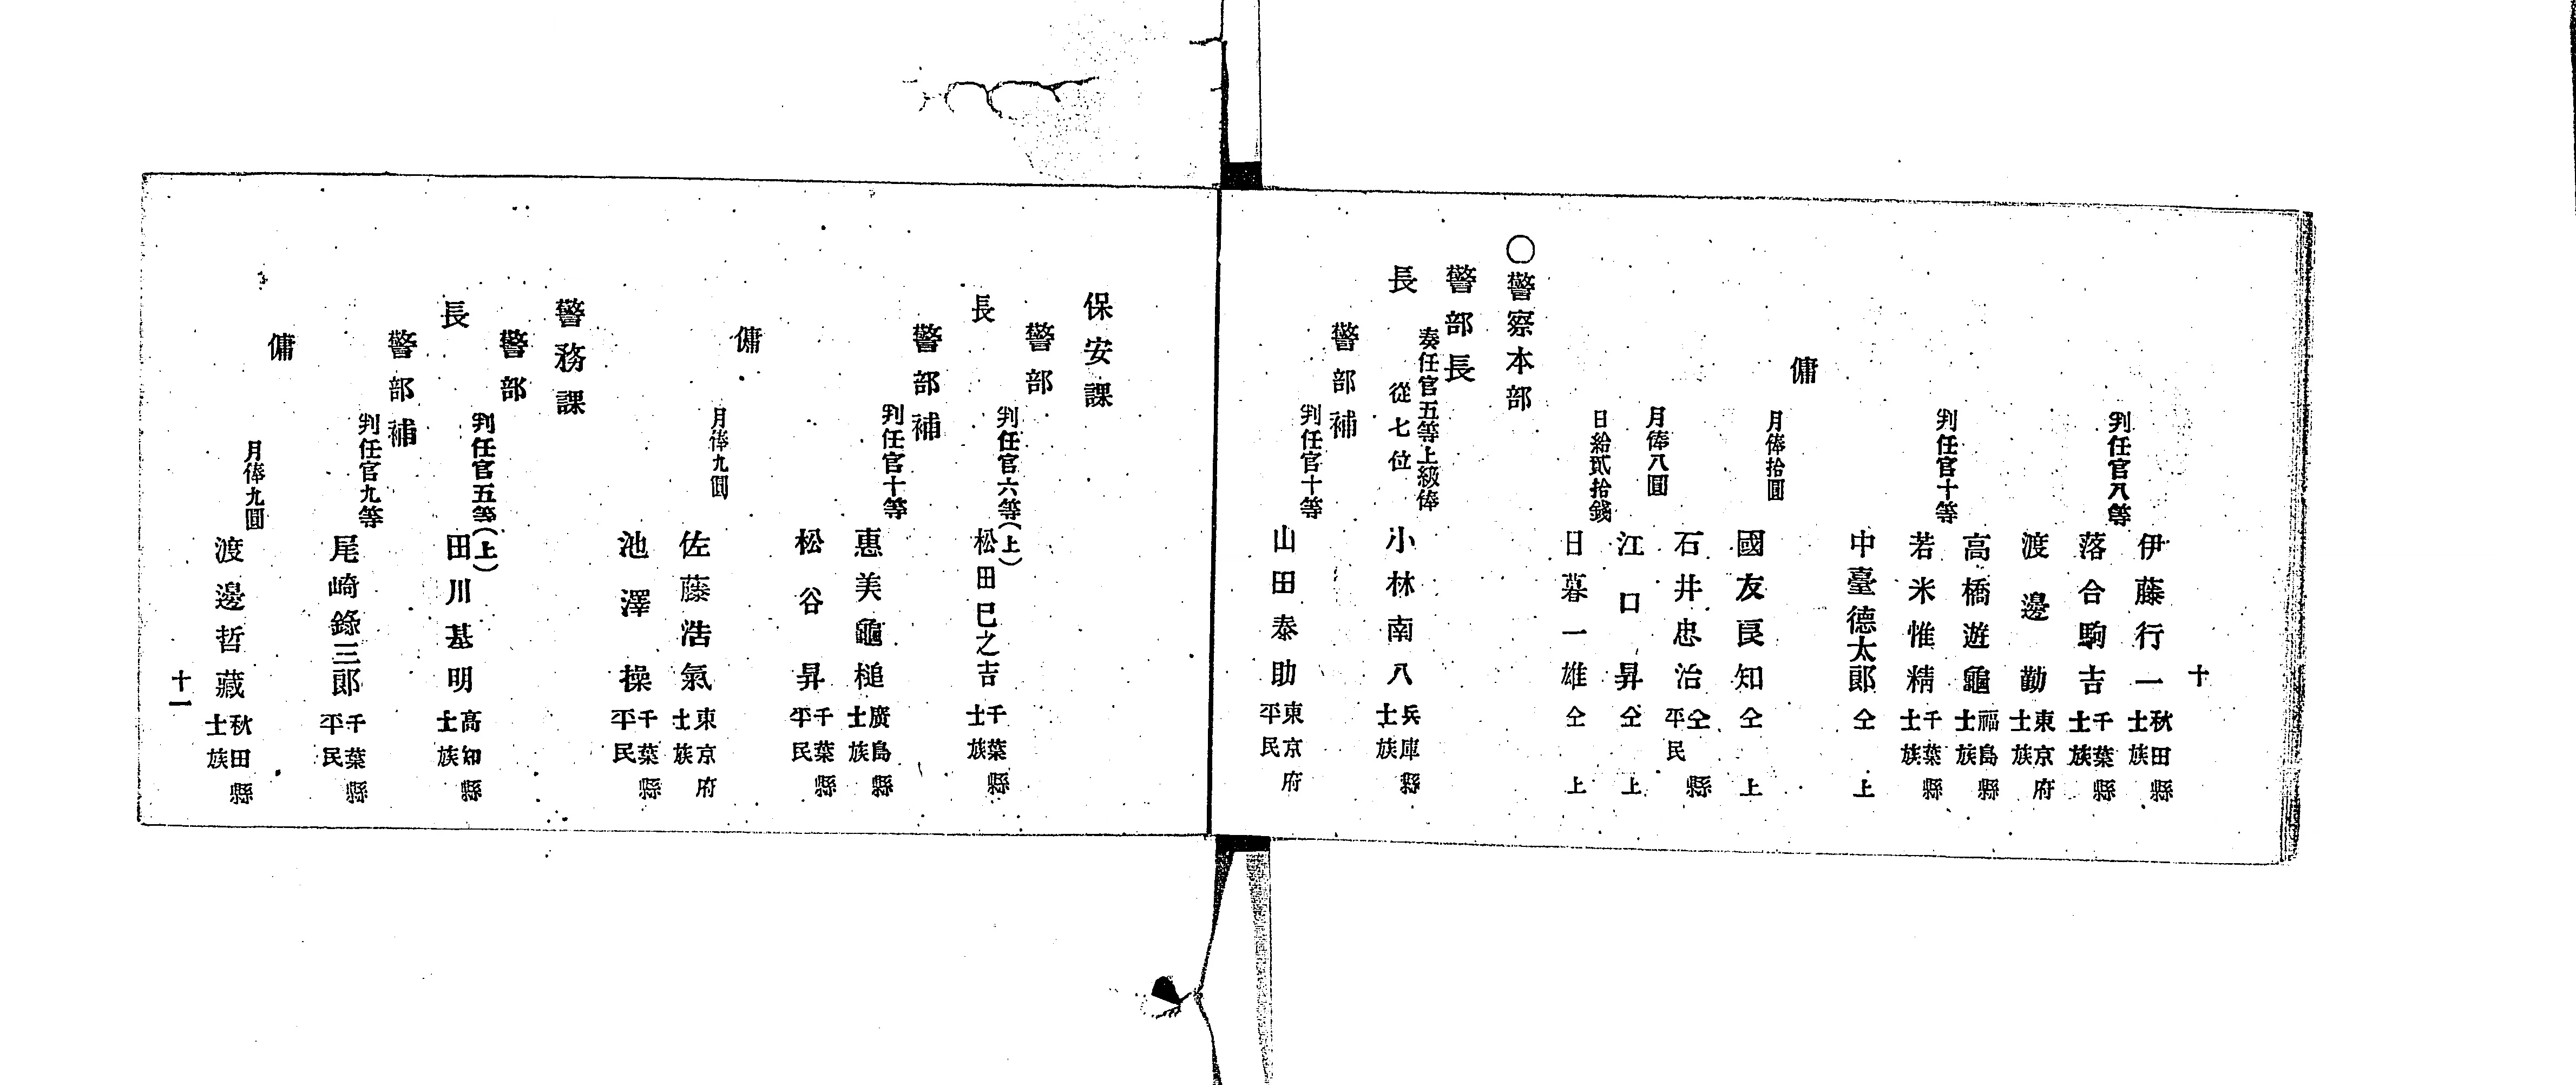 十
判任官八等
伊藤行一 秋田縣士族
落合駒吉 千葉縣士族
渡邊勤 東京府士族
判任官十等
高橋遊龜 福島縣士族
若米惟精 千葉縣士族
中臺德太郎 仝上
傭
月俸拾圓
國友良知 仝上
石井忠治 仝縣平民
月俸八圓
江口昇 仝上
日給貳拾錢
日暮一雄 仝上
〇警察本部
警部長
奏任官五等上級俸
長 從七位 小林南八 兵庫縣士族
警部補
判任官十等
山田泰助 東京府平民
保安課
警部
判任官六等(上)
長 松田巳之吉 千葉縣士族
警部補
判任官十等
惠美龜槌 廣島縣士族
松谷昇 千葉縣平民
傭
月俸九圓
佐藤浩氣 東京府士族
池澤操 千葉縣平民
警務課
警部
判任官五等(上)
長 田川基明 高知縣士族
警部補
判任官九等
尾崎錄三郎 千葉縣平民
傭
月俸九圓
渡邊哲藏 秋田縣士族
十一